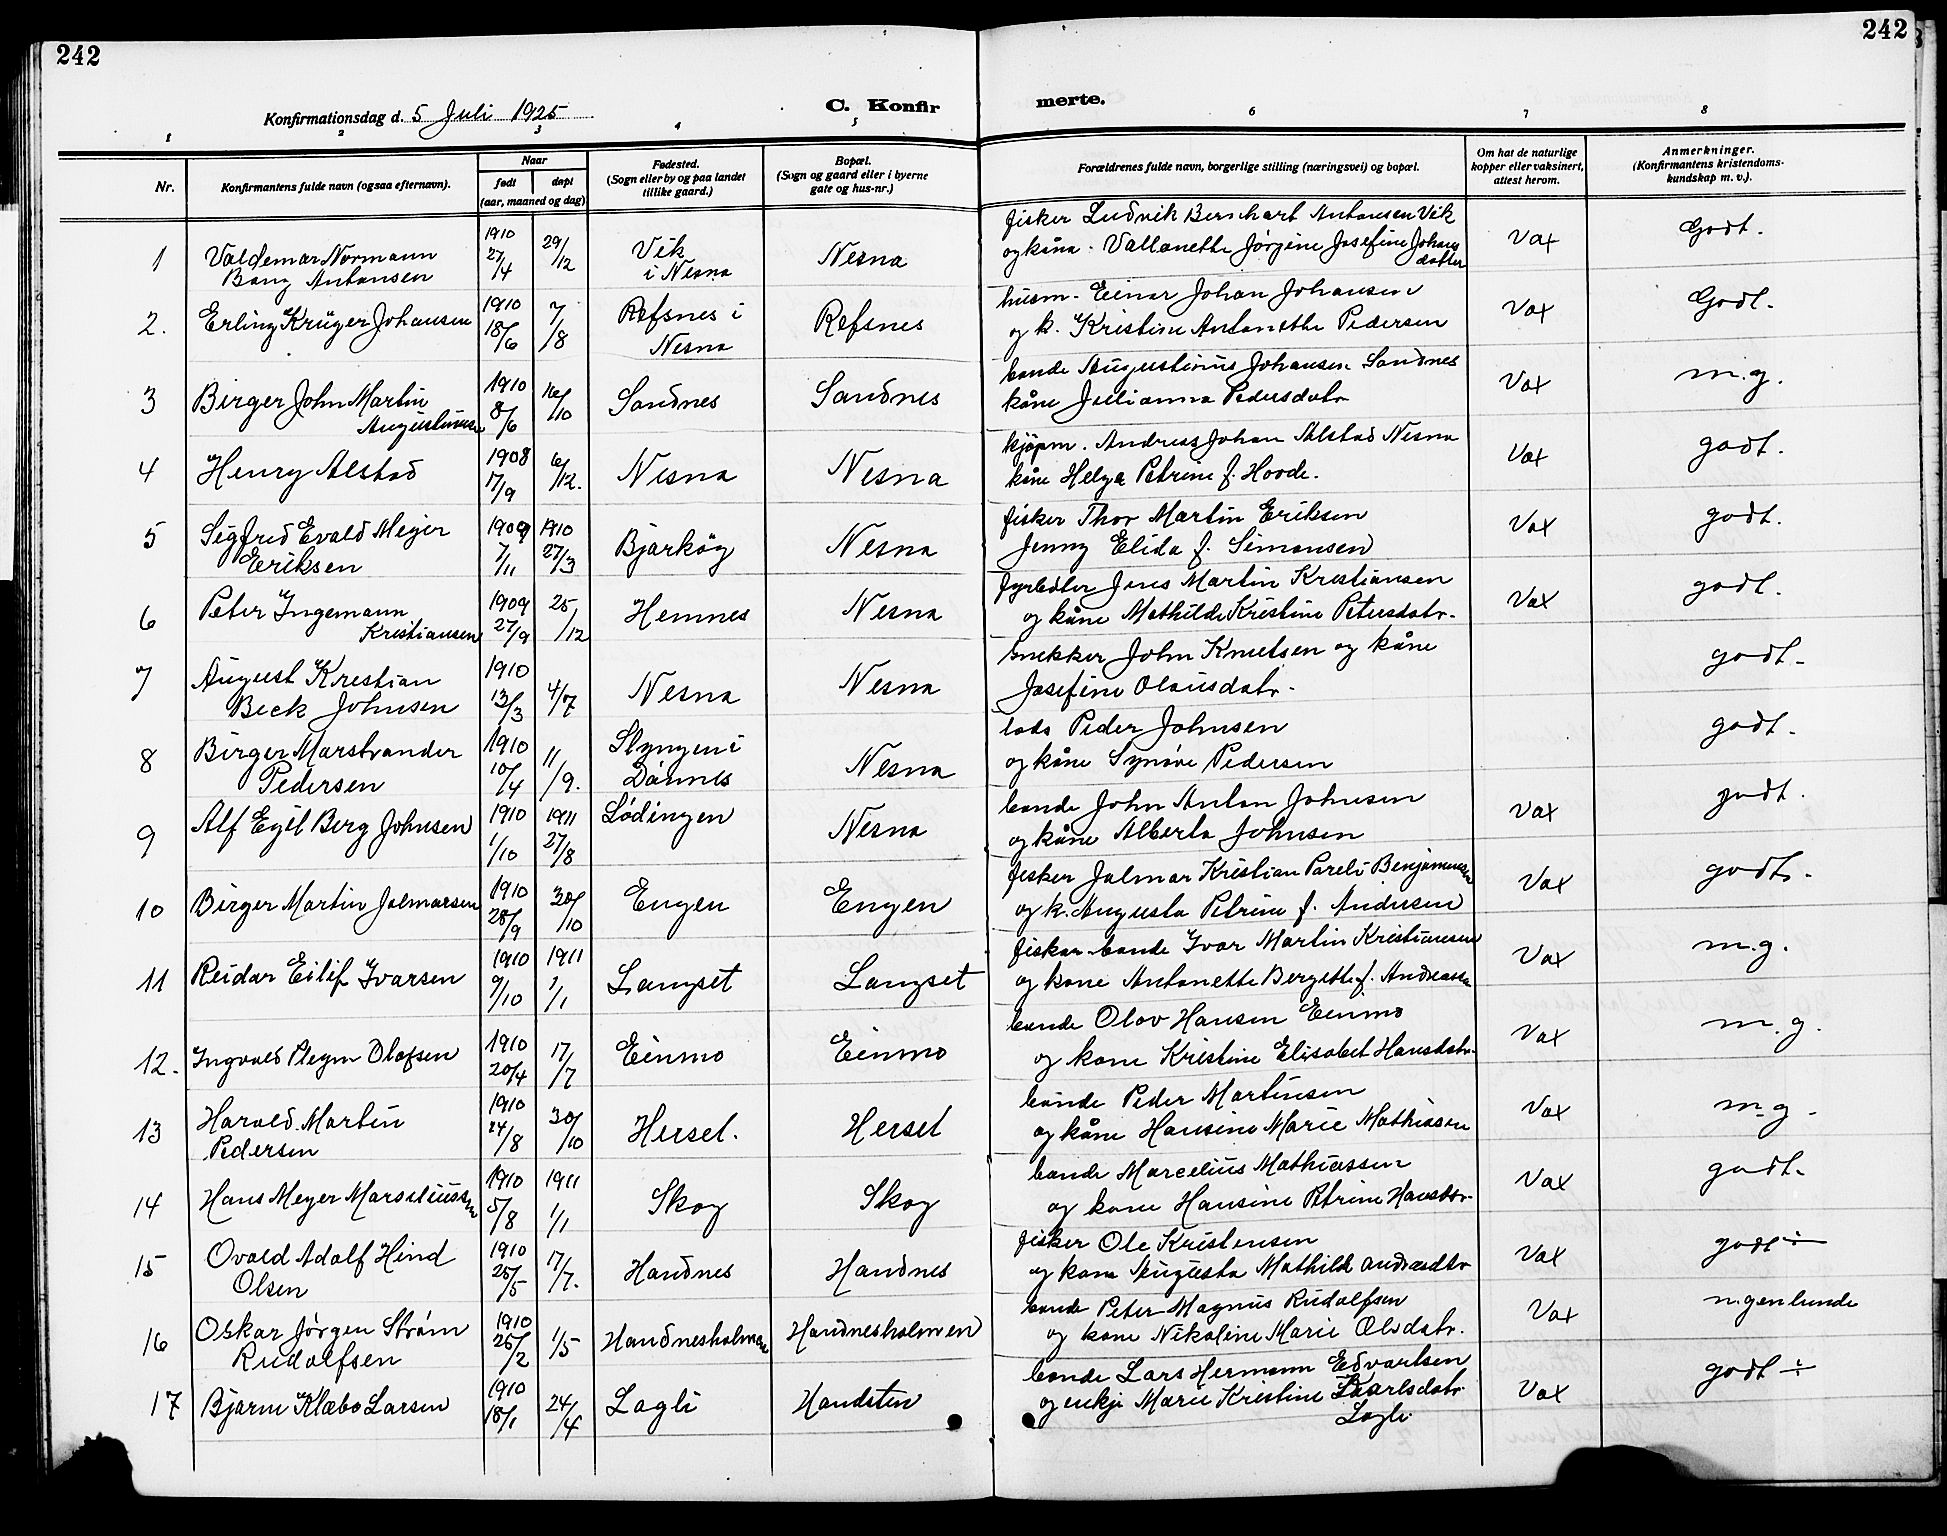 242
242
Konfirmationsdag d. 5 Juli 1925
C. Konfir
merte.
1 2 3 4 5 6 7 8
Nr.
Konfirmantens fulde navn (ogsaa efternavn).
Naar
født døpt
(aar, maaned og dag)
Fødested.
(Sogn eller by og paa landet
tillike gaard.)
Bopæl.
(Sogn og gaard eller i byerne
gate og hus-nr.)
Forældrenes fulde navn, borgerlige stilling (næringsvei) og bopæl.
Om hat de naturlige
kopper eller vaksinert,
attest herom.
Anmerkninger.
(Konfirmantens kristendoms-
kundskap m. v.).
1 Valdemar Normann 1910 27/4 29/12 Vik Nesna fisker Ludvik Bernhart Antonsen Vik Vax Godt.
Bang Antonsen i Nesna og kåna. Vallanette Jørgine Josefine Johans
datter
2. Erling Krüger Johansen 1910 18/6 7/8 Refsnes i Refsnes husm. Einar Johan Johansen Vax Godt.
Nesna og k. Kristine Antonette Pedersen
3 Birger John Martin 1910 8/6 16/10 Sandnes Sandnes bonde Augustinius Johansen Sandnes Vax m.g.
Augustinusen kåne Julianna Pedersdatr
4 Henry Alstad 1908 17/9 6/12. Nesna Nesna kjøpm. Andreas Johan Alstad Nesna Vax godt.
kåne Helga Petrine f. Hovde.
5 Sigfred Evald Meyer 1909 7/11 1910 27/3 Bjarkøy Nesna fisker Thor Martin Eriksen Vax godt.
Eriksen Jenny Elida f. Simonsen
6 Peter Ingemann 1909 27/9 25/12 Hemnes Nesna fyrbøter Jens Martin Kristiansen Vax godt.
Kristiansen og kåne Mathilde Kristine Petersdatr.
7 August Krestian 1910 13/3 4/7 Nesna Nesna snekker John Knutsen og kåne godt.
Beck Johnsen Josefine Olausdatr.
8 Birger Marstrander 1910 10/4 11/9. Slyngen i Nesna lods Peder Johnsen godt.
Pedersen Dønnes og kåne Synøve Pedersen
9 Alf Egil Berg Johnsen 1910 1/10 1911 27/8 Lødingen Nesna bonde John Anton Johnsen Vax godt.
og kåne Alberta Johnsen
10 Birger Martin Jalmarsen 1910 28/9 30/10 Engen Engen fisker Jalmar Kristian Pareli Benjaminsen Vax godt.
og k. Augusta Petrine f. Andersen
11 Reidar Eilif Ivarsen 1910 9/10 1911 1/1 Langset Langset fisker-bonde Ivar Martin Kristiansen Vax m.g.
og kone Antonette Bergitte f. Andreassen
12. Ingvald Pleym Olafsen 1910 20/4 17/7 Einmo Einmo bonde Olov Hansen Einmo Vax m.g.
og kone Kristine Elisabet Hansdatr.
13 Harald Martin 1910 24/8 30/10 Herset. Herset bonde Peder Martinsen Vax m.g.
Pedersen og kåne Hansine Marie Mathiassen
14 Hans Meyer Marseliussen 1910 5/8 1911 1/1 Skog Skog bonde Marcelius Mathiassen Vax godt.
og kone Hansine Petrine Hansdtr.
15 Ovald Adolf Hind 1910 25/5 17/7. Handnes Handnes fisker Ole Kristensen Vax godt ÷
Olsen og kone Augusta Mathilde Andreasdtr
16 Oskar Jørgen Strøm 1910 25/2 1/5 Handnesholmen Handnesholmen bonde Peter Magnus Rudolfsen Vax nogenlunde
Rudolfsen og kone Nikoline Marie Olsdatr.
17 Bjarne Klæbo Larsen 1910 18/1 24/4 Lagli Handsten bonde Lars Hermann Edvartsen Vax godt ÷
og enkje Marie Kristine Karlsdatr.
Lagli